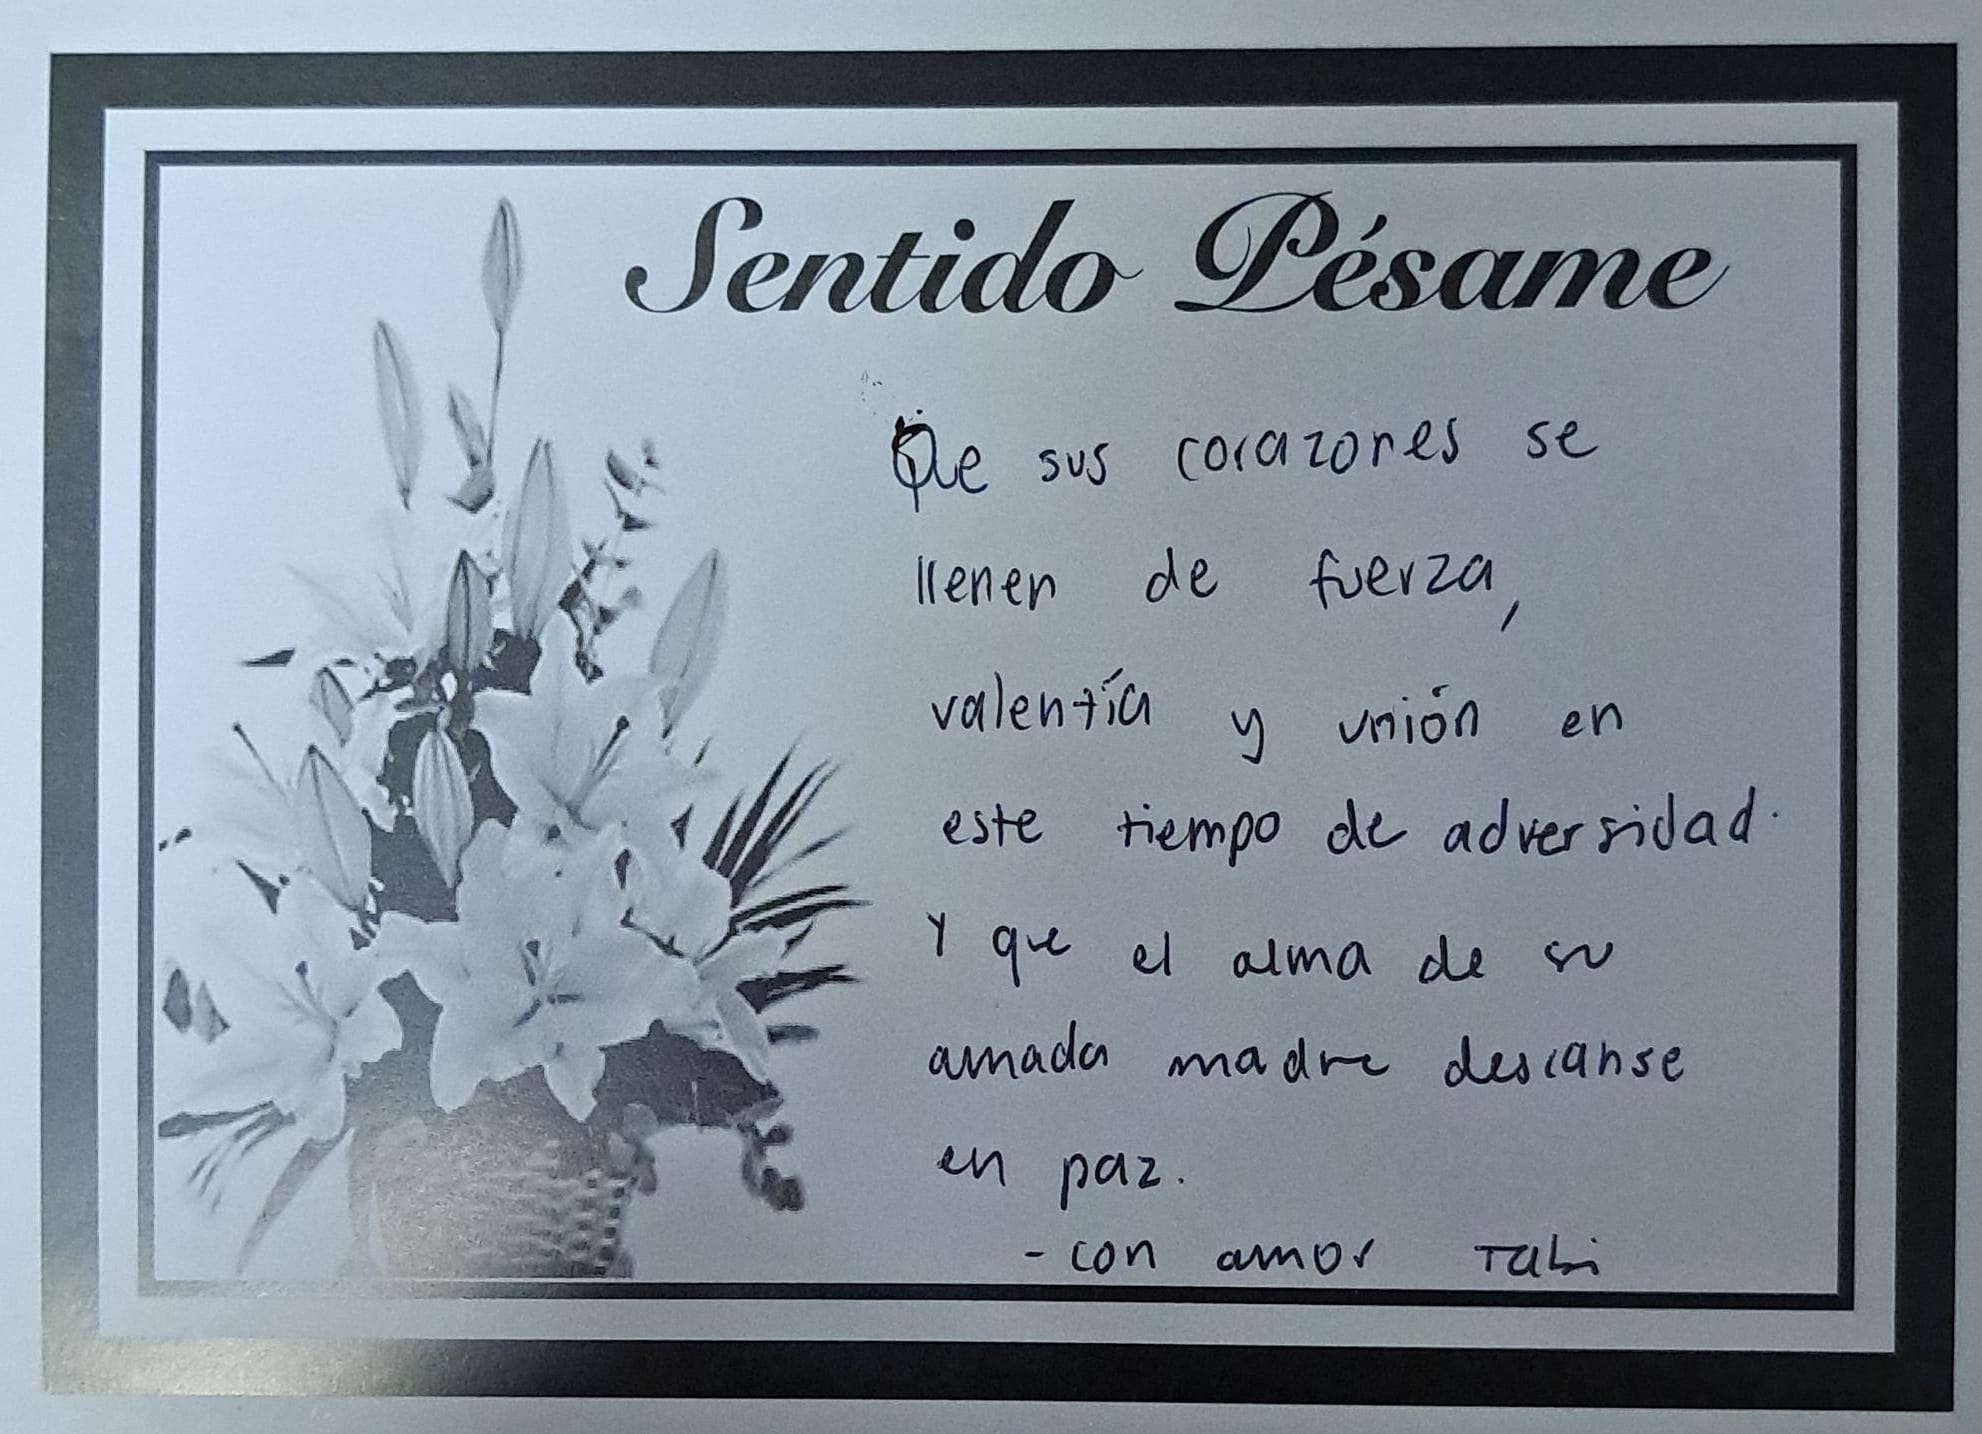 Sentido Pésame
Que sus corazones se
llenen de fuerza,
valentía y unión en
este tiempo de adversidad.
Y que el alma de su
amada madre descanse
en paz.
- con amor Tabi